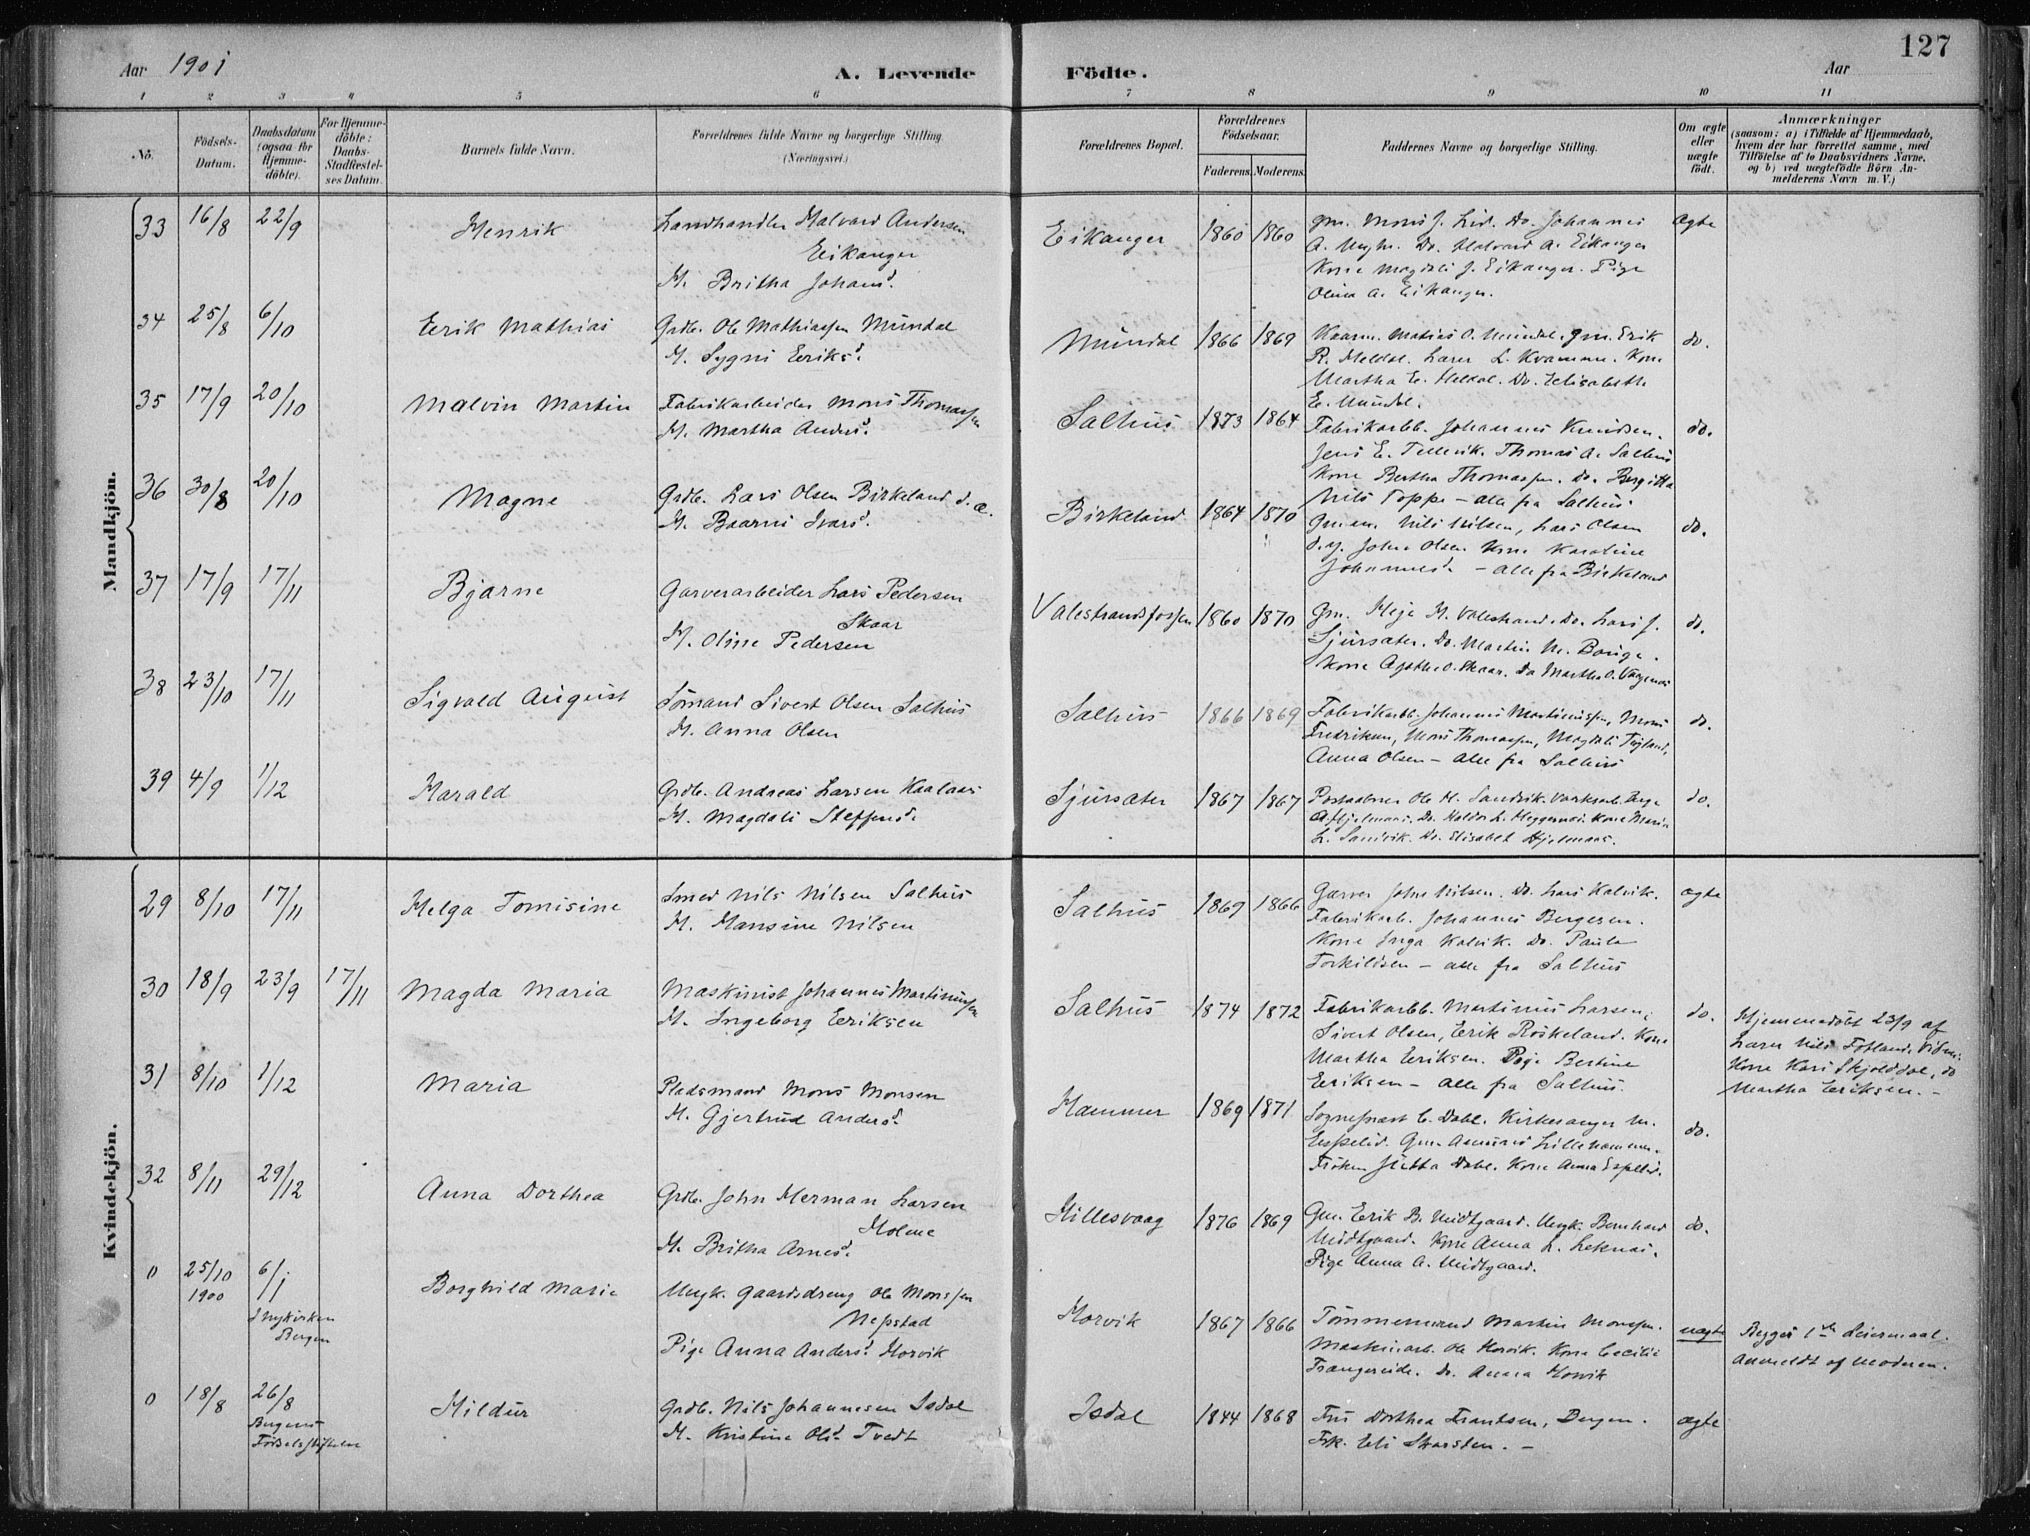 127
Aar 1901
A. Levende
Födte.
Aar
1 2 3 4 5 6 7 8 9 10 11
No.
Födsels-Datum.
Daabsdatum (ogsaa for Hjemme-döbte).
For Hjemme-döbte: Daabs-Stadfæstel-ses Datum.
Barnets fulde Navn.
Forældrenes fulde Navne og borgerlige Stilling.
(Næringsvei.)
Forældrenes Bopæl.
Forældrenes Födselsaar.
Faderens.
Moderens.
Faddernes Navne og borgerlige Stilling.
Om ægte eller uægte födt.
Anmærkninger
(saasom: a) i Tilfælde af Hjemmedaab, hvem der har forrettet samme, med Tilföielse af to Daabsvidners Navne, og b) ved uægtefödte Börn Anmelderens Navn m. V.)
Mandkjön.
33 16/8 22/9 Henrik Landhandler Halvard Andersen Eikanger
H. Britha Johans d.
Eikanger 1860 1860 Gm. Mons J. Lid. Do. Johannes
A. Do. Halvard A. Eikanger
Kone Magdli J. Eikanger. Pige
Olina A. Eikanger.
ægte
34 25/8 6/10 Eerik Mathias Grdb. Ole Mathiassen Mundal
H. Sygni Eeriks d.
Mundal 1866 1869 Kaarm. Matias O. Mundal. Gm. Erik
R. Heldal. Lærer L. Kvamme. Kone
Martha E. Heldal. Do. Elisabeth
E. Mundal.
do.
35 17/9 20/10 Malvin Martin Fabrikarbeider Mons Thomassen
H. Martha Anders d.
Salhus 1873 1864 Fabrikarbb. Johannes Knudsen.
Jens E. Tellevik. Thomas A. Salhus
Kone Bertha Thomassen. Do. Bergitta
Nils Toppe – alle fra Salhus
do.
36 30/8 20/10 Magne Grdb. Lars Olsen Birkeland d. æ.
H. Baarni Ivars d.
Birkeland 1864 1870 Gmm. Nils Nilsen, Lars Olsen
d. y. John Olsen. Kone Karoline
Johannes d. – alle fra Birkeland
do.
37 17/9 17/11 Bjarne Garverarbeider Lars Pedersen Skaar
H. Oline Pedersen
Valestrandsfossen 1860 1870 Gm. Helje H. Valestrand. Do. Lars J.
Sjursæter. Do. Martin M. Bouge.
Kone Agathe O. Skaar. Do Martha O. Vagenes
do.
38 23/10 17/11 Sigvald August Sömand Sivert Olsen Salhus
H. Anna Olsen
Salhus 1866 1869 Fabrikarbb. Johannes Martinussen, Mons
Fredriksen, Mons Thomassen, Magdli
Anna Olsen – alle fra Salhus
do.
39 4/9 1/12 Harald Grdb. Andreas Larsen Haalaas
H. Magdali Steffens d.
Sjursæter 1867 1867 Postaabner Ole H. Sandvik.
A. Hjelmaas. Do. Haldor L. Heggernes. Kone Marie
L. Sandvik. Do. Elisabet Hjelmaas.
do.
Kvindekjön.
29 8/10 17/11 Helga Tomisine Smed Nils Nilsen Salhus
H. Hansine Nilsen
Salhus 1869 1866 Garver John Nilsen. Do. Lars Kalvik.
Fabrikarb. Johannes Bergesen.
Kone Inga Kalvik. Do. Paula
Torkildsen – alle fra Salhus
ægte
30 18/9 23/9 17/11 Magda Maria Maskinist Johannes Martinussen
H. Ingeborg Eeriksen
Salhus 1874 1872 Fabrikarbb. Martinus Larsen,
Sivert Olsen, Eerik Röskeland. Kone
Martha Eeriksen. Pige Bertine
Eeriksen – alle fra Salhus.
do.
Hjemmedöbt 23/9 af
Lærer Nils Fotland. Vidner:
Kone Kari Skjolddal, do
Martha Eeriksen. –
31 8/10 1/12 Maria Pladsmand Mons Monsen
H. Gjertrud Anders d.
Hammer 1869 1871 Sognepræst C. Dahl. Kirkesanger M.
Espelid. Gm. Asmund Lillehammer.
Fröken Jutta Dahl. Kone Anna Espelid.
do.
32 8/11 29/12 Anna Dorthea Grdb. John Herman Larsen Holme
H. Britha Arnes d.
Hillesvaag 1876 1869 Gm. Eerik B. Midtgaard. Ungk. Bernhard
Midtgaard. Kone Anna L. Leknes.
Pige Anna A. Midtgaard.
do.
0 25/10 1900 6/1 I Nykirken Bergen Borghild Marie Ungk. Gaardsdreng Ole Monssen Nepstad
Pige Anna Anders d. Horvik
Horvik 1867 1866 Tömmermand Martin Monssen.
Maskinarb. Ole Horvik. Kone Cecilie
Trangereide. Do. Anna Horvik
uægte
Begges 1ste Leiermaal.
Anmeldt af Moderen.
0 18/8 26/8 Bergens Födselsstiftelse Hildur Grdb. Nils Johannesen Isdal
H. Kristine Ols d. Tvedt
Isdal 1844 1868 Fru Dorthea Frantsen, Bergen.
Frk. Eli Skarsten. –
ægte